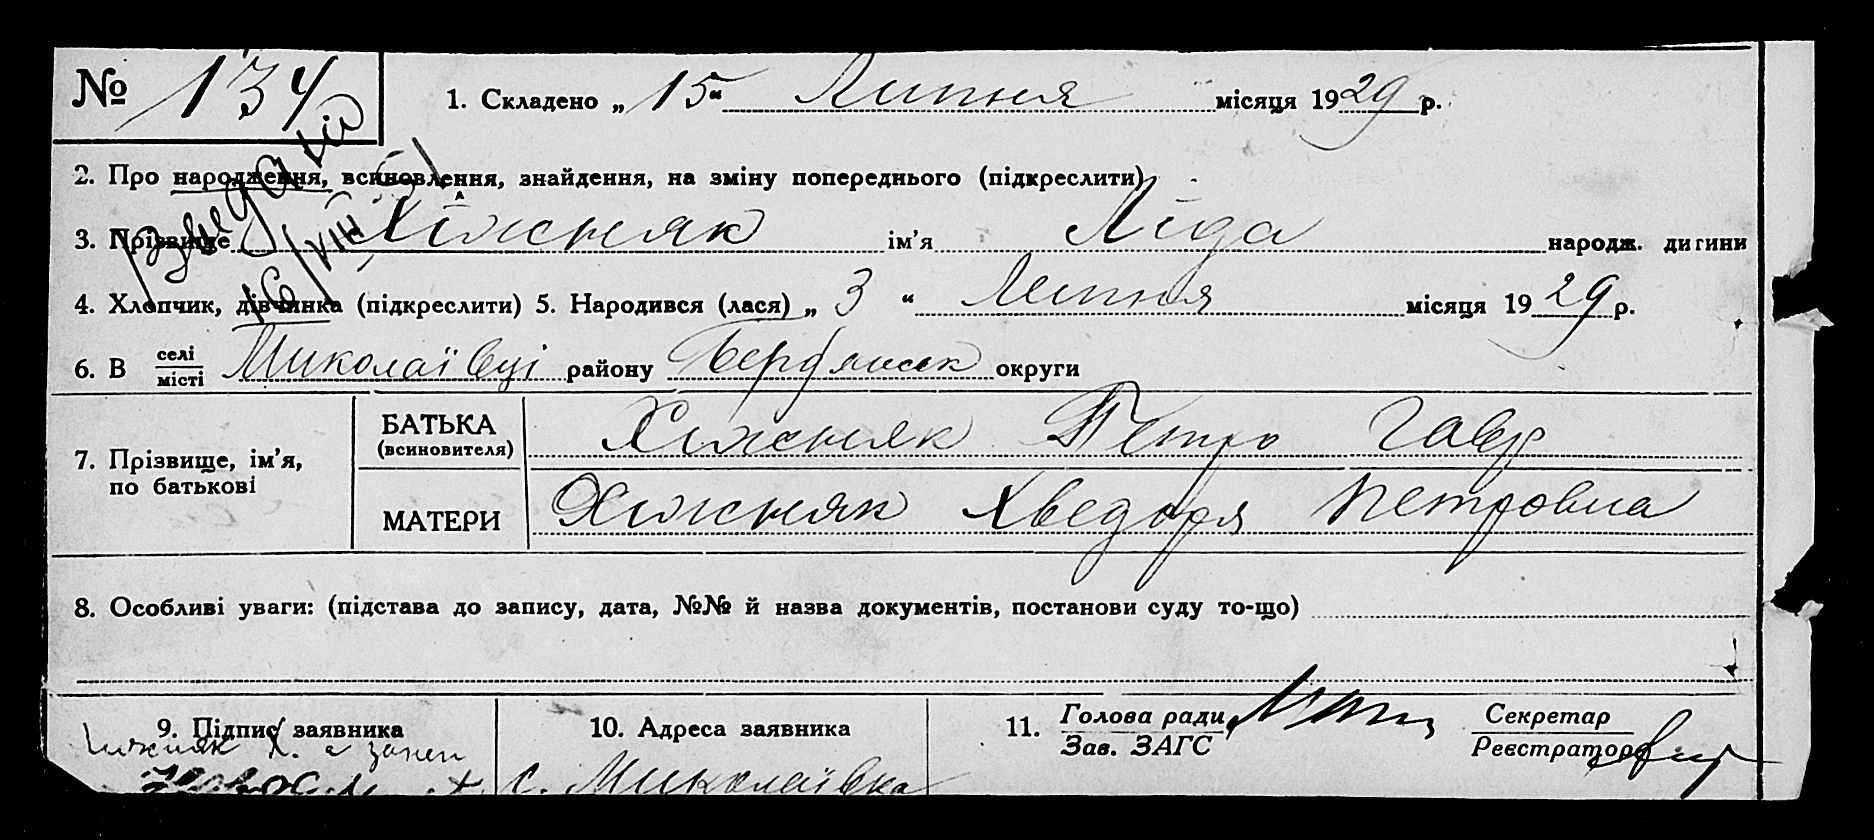 № 134
1. Складено „ 15 “ Липня місяця 1929 р.
2. Про народження, всиновлення, знайдення, на зміну попереднього (підкреслити)
3. Прізвище Хіжняк ім’я Ліда народж. дитини
4. Хлопчик, дівчинка (підкреслити) 5. Народився (лася) „ 3 “ Липня місяця 1929 р.
6. В селі місті Миколаївці району Бердянськ округи
7. Прізвище, ім’я, по батькові
БАТЬКА (всиновителя) Хижняк Петро Гавр
МАТЕРИ Хижняк Хведоря Петровна
8. Особливі уваги: (підстава до запису, дата, №№ й назва документів, постанови суду то-що)
9. Підпис заявника
10. Адреса заявника
с. Миколаївка
11. Голова ради, Зав. ЗАГС
Секретар Реєстратор